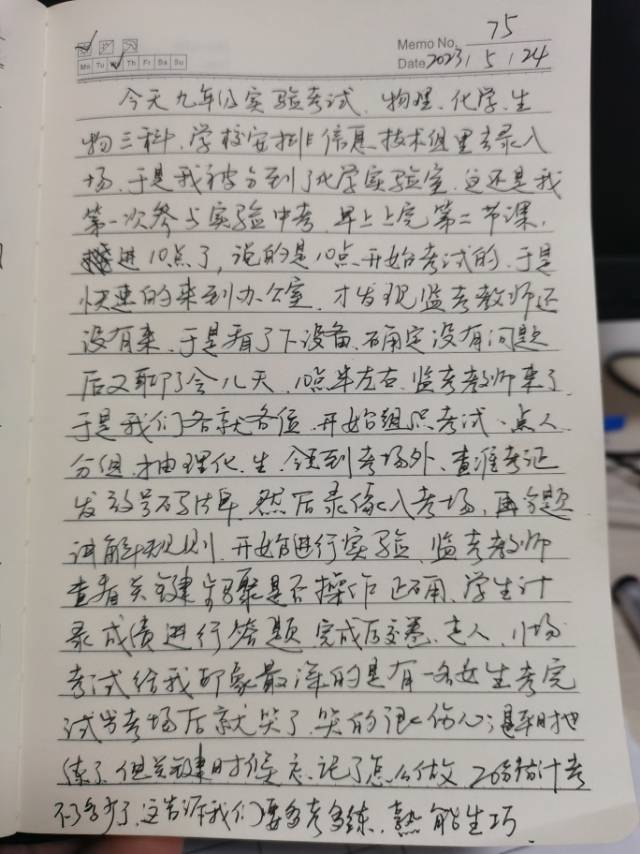 Memo No. 75
Mo Tu Th Fr Sa Su
Date 2023 / 5 / 24
今天九年级实验考试、物理、化学、生
物三科,学校安排信息技术组里去录入
场,于是我被分到了化学实验室,这还是我
第一次参与实验中考,早上上完第二节课,
进10点了,说的是10点开始考试的,于是
快速的来到办公室,才发现监考教师还
没有来,于是看了下设备,确定没有问题
后又聊了会儿天,10点半左右,监考教师来了
于是我们各就各位,开始组织考试、点人
分组,抽理化、生,领到考场外,查准考证
发放号码牌,然后录像入考场,再分题
讲解规则,开始进行实验,监考教师
查看关键步骤是否操作正确,学生计
录成绩进行答题,完成后交卷,走人,小场
考试给我印象最深的是有一名女生考完
试出考场后就哭了,哭的很伤心;是平时也
练了,但关键时候忘记了怎么做,估计考
不了多少了,这告诉我们要多考多练,熟能生巧